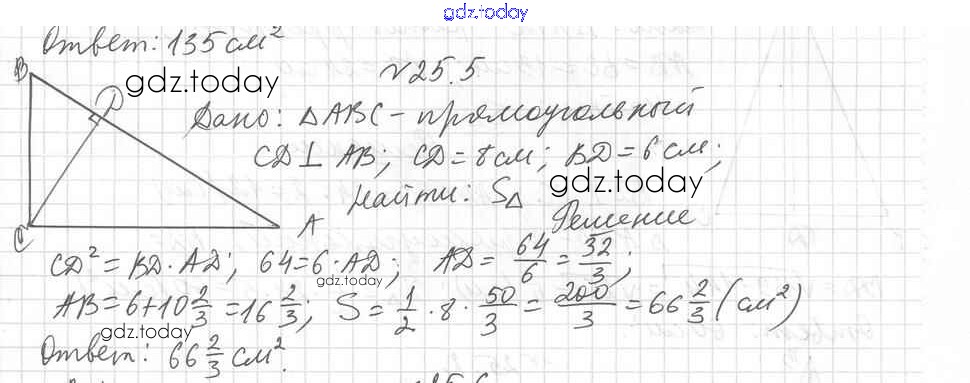 gdz.today
Ответ: 135 см²
№ 25.5
B
D
gdz.today
Дано: △ABC - прямоугольный
CD ⊥ AB; CD = 8 см; BD = 6 см;
gdz.today
Найти: S△
C
A
Решение
CD² = BD · AD; 64 = 6 · AD; AD = 64/6 = 32/3;
gdz.today
AB = 6 + 10 2/3 = 16 2/3; S = 1/2 · 8 · 50/3 = 200/3 = 66 2/3 (см²)
gdz.today
Ответ: 66 2/3 см².